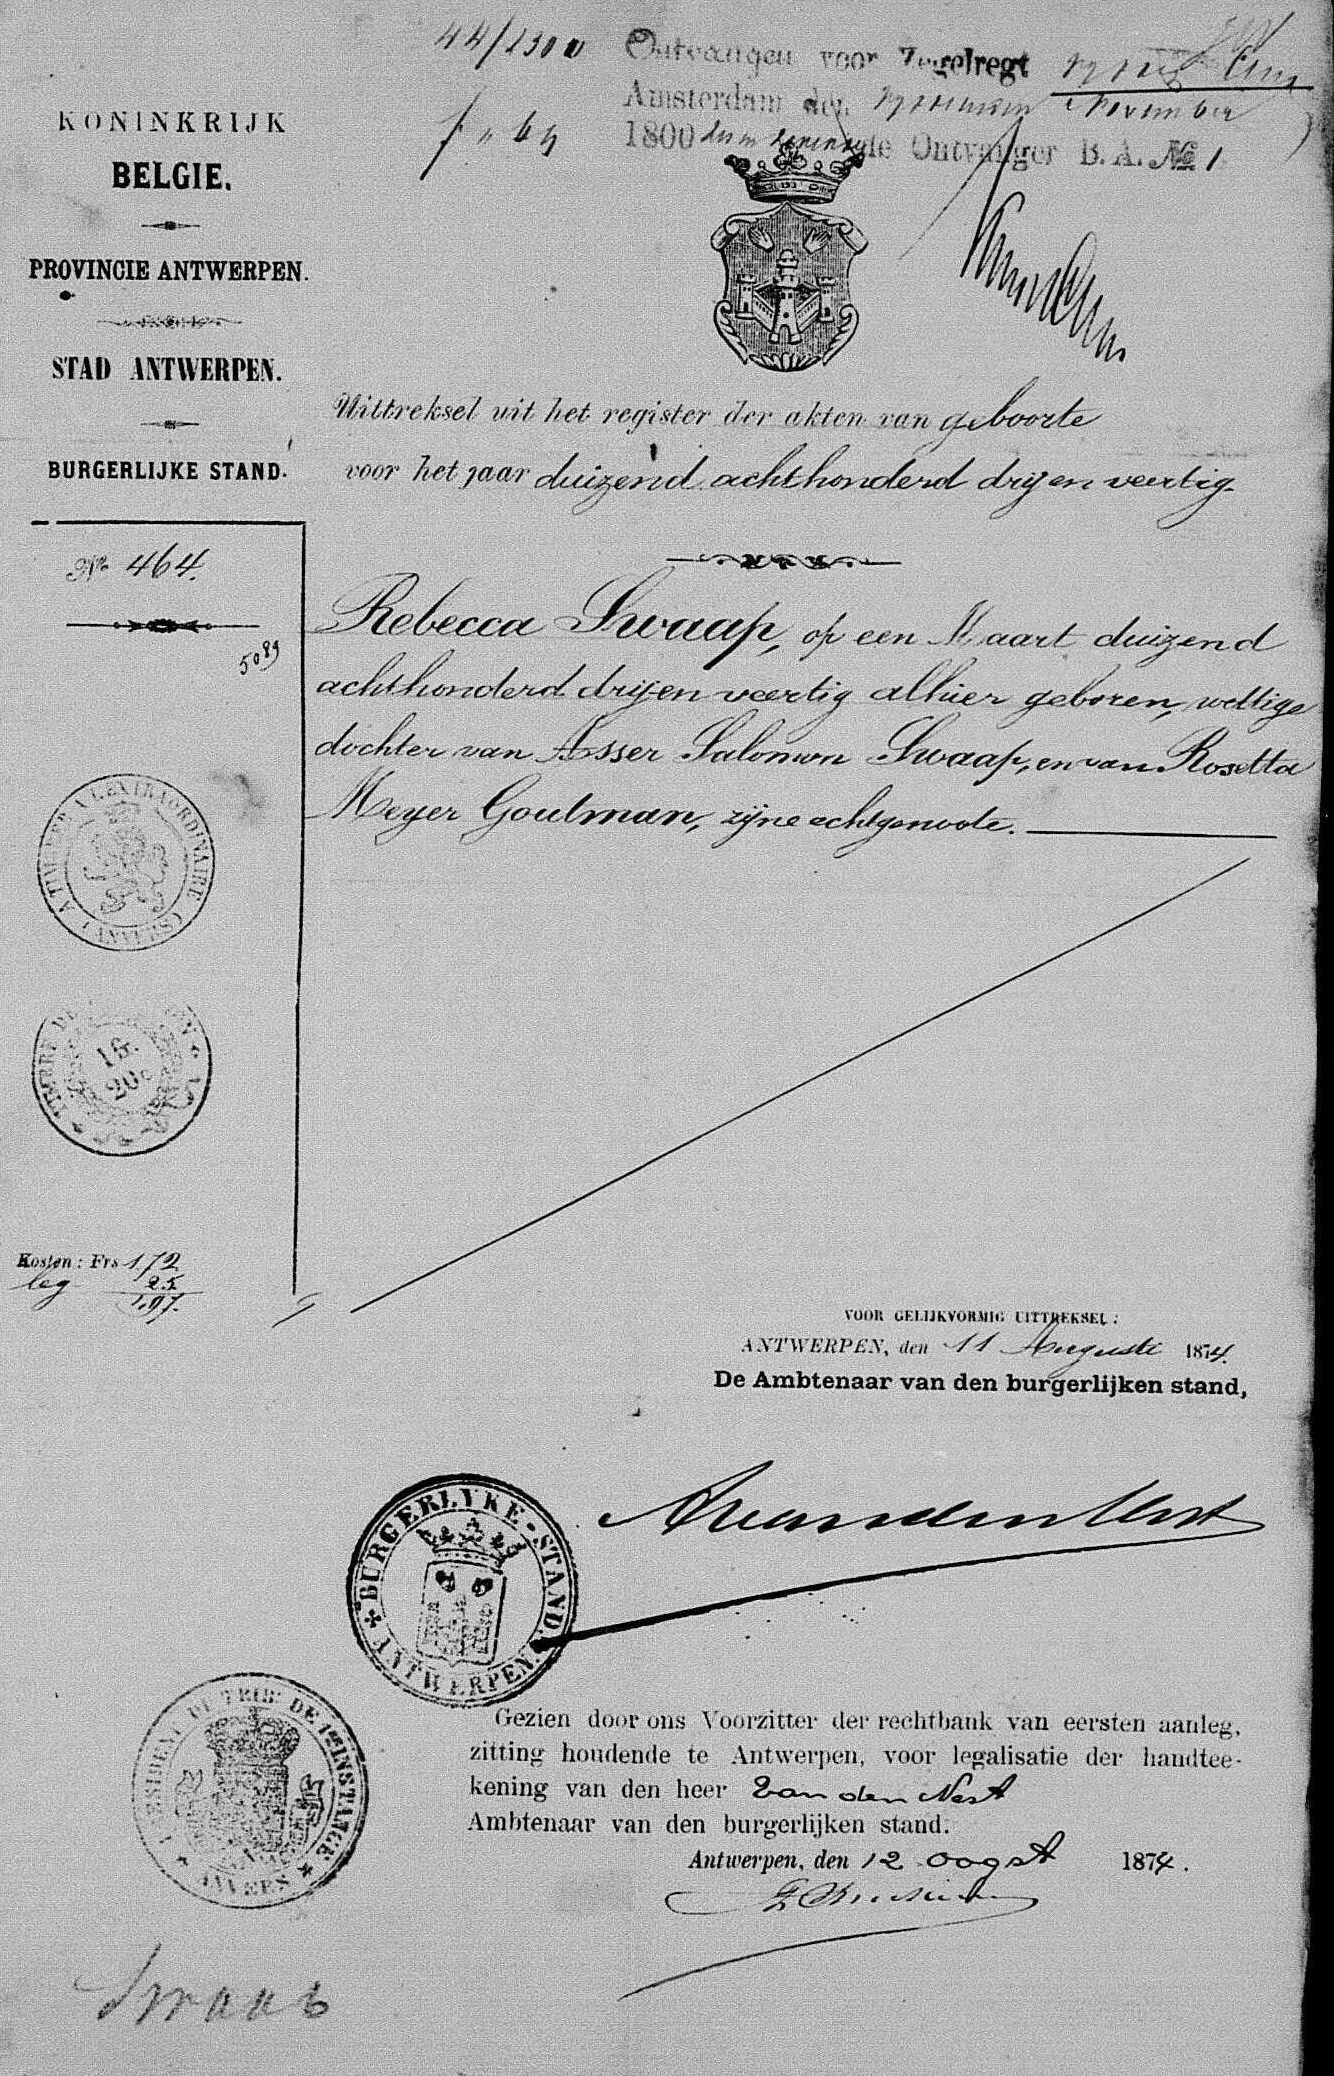 44/2300
Ontvangen voor Zegelregt
Amsterdam den November
1800 de Ontvanger B. A. No 1
f „ 69
KONINKRIJK
BELGIE.
PROVINCIE ANTWERPEN.
STAD ANTWERPEN.
BURGERLIJKE STAND.
Uittreksel uit het register der akten van geboorte
voor het jaar duizend achthonderd drij en veertig.
No 464.
5089
Rebecca Swaap, op een Maart duizend
achthonderd drij en veertig alhier geboren, wettige
dochter van Asser Salomon Swaap, en van Rosetta
Meyer Goulman, zijne echtgenoote.
TIMBRE A L'EXTRAORDINAIRE (ANVERS)
TIMBRE DE
1 fr.
20 c
Kosten: Frs 1.72
leg 25
1,97.
VOOR GELIJKVORMIG UITTREKSEL:
ANTWERPEN, den 11 Augusti 1874.
De Ambtenaar van den burgerlijken stand,
BURGERLYKE-STAND. ANTWERPEN.
PRESIDENT DU TRIB. DE 1re INSTANCE ANVERS
Gezien door ons Voorzitter der rechtbank van eersten aanleg,
zitting houdende te Antwerpen, voor legalisatie der handtee-
kening van den heer Van den Nest
Ambtenaar van den burgerlijken stand.
Antwerpen, den 12 Oogst 1874.
Swaab